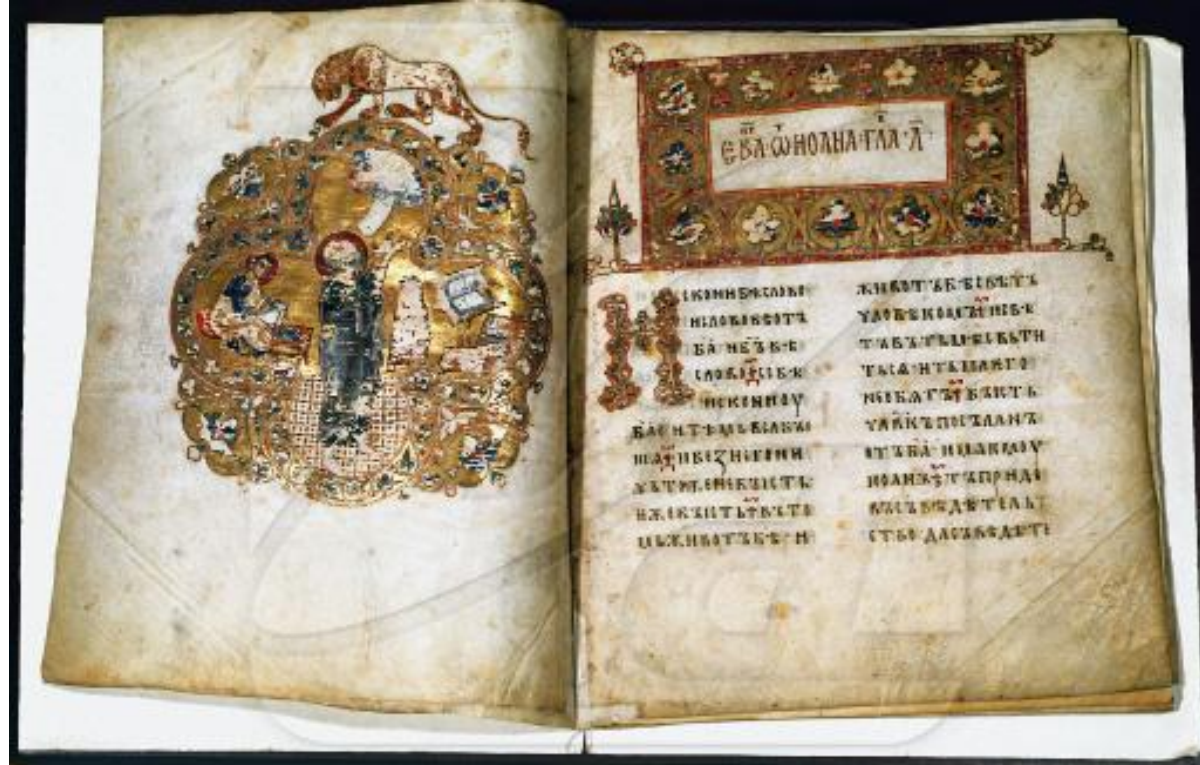 ЕВА ѿ ИОАНА ГЛА А҃
Искони бѣ слово
и слово бѣ отъ
ба҃ и бъ҃ бѣ
слово се бѣ
искони оу
ба҃ и тѣмь вьса бы
шѧ и беꙁ него ни
чьтоже не бысть
ѥже бысть въ то
мь животъ бѣ и
животъ бѣ свѣтъ
чловѣкомъ и свѣ
тъ въ тьмѣ свьти
тьсѧ и тьма ѥго
не обѧтъ бысть
чл҃вкъ посъланъ
отъ ба҃ имѧ ѥмоу
иоанъ тъ приде
въ съвѣдѣтель
ство да съвѣдѣте